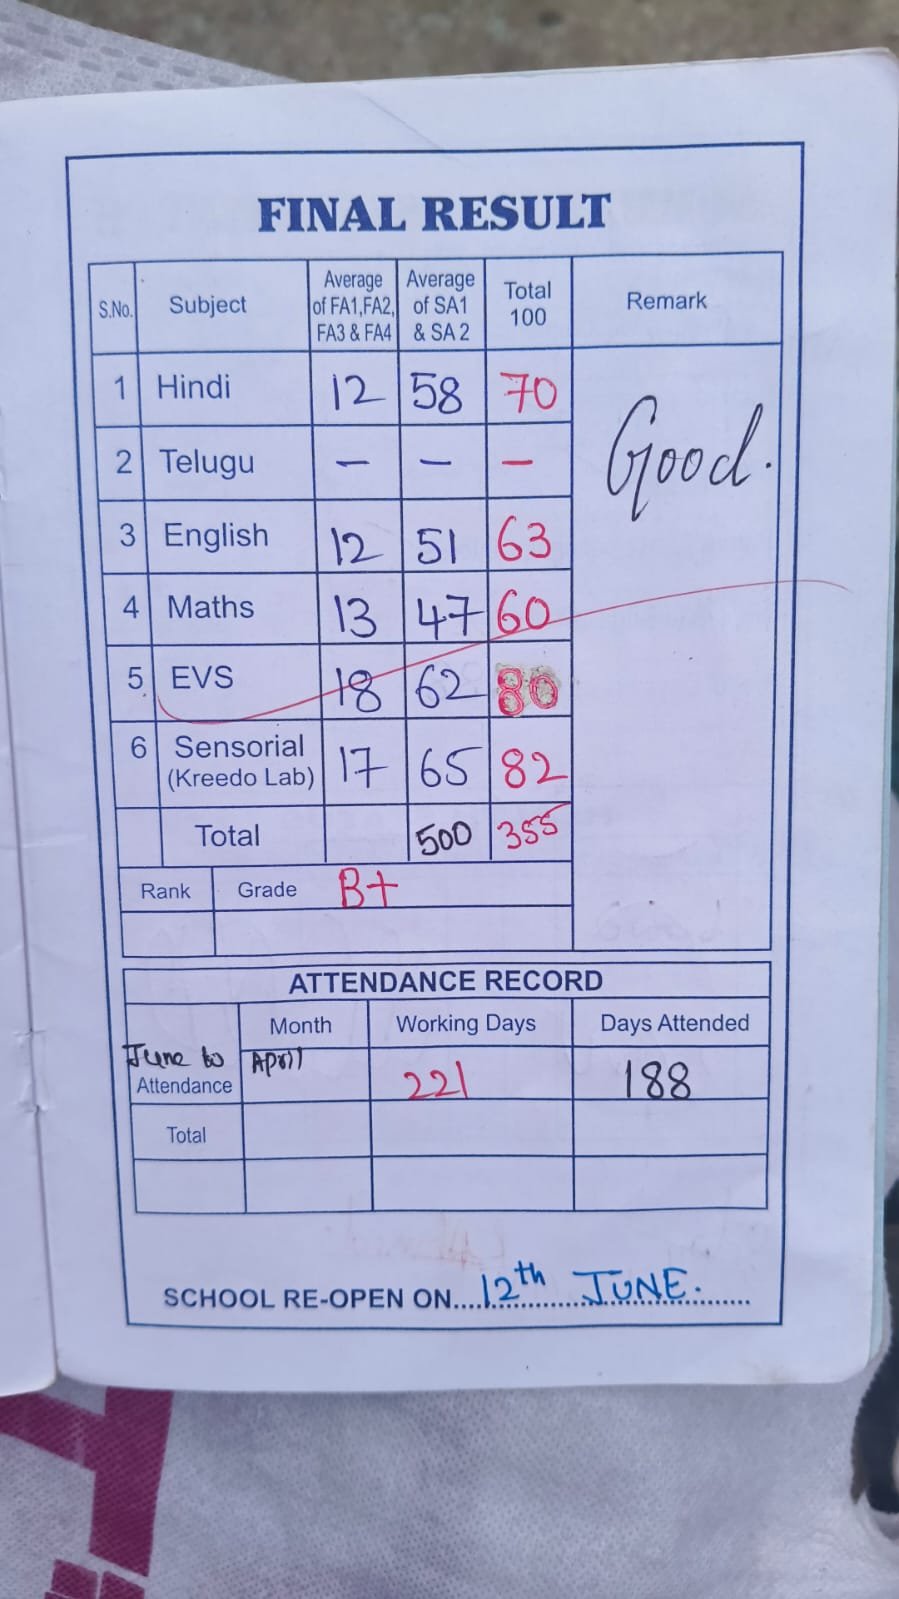 FINAL RESULT
S.No. Subject Average of FA1,FA2, FA3 & FA4 Average of SA1 & SA 2 Total 100 Remark
1 Hindi 12 58 70 Good.
2 Telugu – – –
3 English 12 51 63
4 Maths 13 47 60
5 EVS 18 62 80
6 Sensorial (Kreedo Lab) 17 65 82
Total 500 355
Rank Grade B+
ATTENDANCE RECORD
Month Working Days Days Attended
June to April
Attendance 221 188
Total
SCHOOL RE-OPEN ON....12th JUNE.